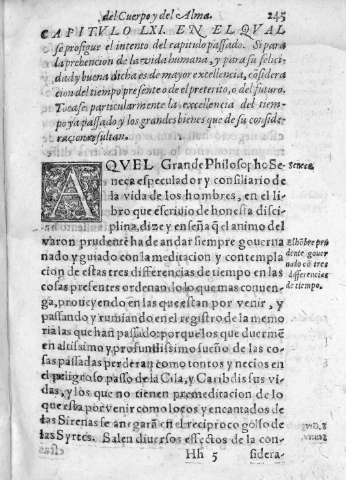 del Cuerpo y del Alma. 245
CAPITVLO LXI. EN EL QVAL
se prosigue el intento del capitulo passado. Si para
la prehencion de la vida humana, y para su felici
dad y buena dicha es de mayor excellencia, cõsidera
cion del tiempo presente o de el preterito, o del futuro.
Tocase particularmente la excellencia del tiem-
po ya passado y los grandes bienes que de su conside-
racion resultan.
AQVEL Grande Philosopho Se-
neca especulador y consiliario de
la vida de los hombres, en el li-
bro que escriuio de honesta disci-
plina, dize y enseña q̃ el animo del
varon prudente ha de andar siempre gouerna
nado y guiado con la meditacion y contempla
cion de estas tres differencias de tiempo en las
cosas presentes ordenando lo que mas conuen-
ga, proueyendo en las que estan por venir, y
passando y rumiando en el registro de la memo
ria las que han passado: porque los que duermẽ
en altissimo y profundissimo sueño de las co-
sas passadas perderan como tontos y necios en
el peligroso passo de la Cila, y Caribdis sus vi-
das, y los que no tienen premeditacion de lo
que esta por venir como locos y encantados de
las Sirenas se anegarã en el reciproco golfo de
las Syrtes. Salen diuersos effectos de la con-
Hh 5 sidera-
Seneca.
El hõbre pru
dente gouer
nado cõ tres
differencias
de tiempo.